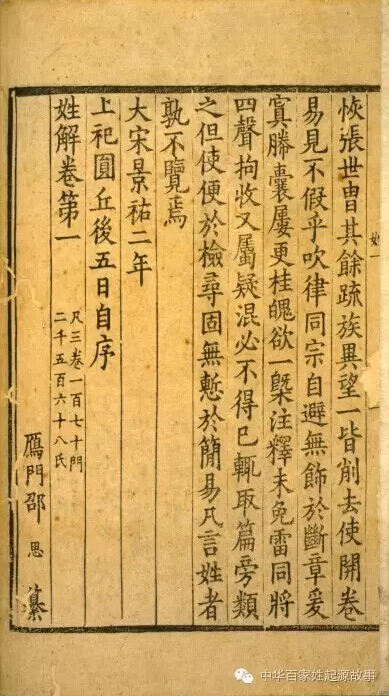 恢張世胄其餘疏族異望一皆削去使開卷
易見不假乎吹律同宗自避無飾於斷章爰
寘縢囊屢更桂魄欲一槩注釋未免雷同將
四聲拘收又屬疑混必不得已輒取篇旁類
之但使便於檢尋固無慙於簡易凡言姓者
孰不覽焉
大宋景祐二年
上祀圓丘後五日自序
姓解卷第一
凡三卷一百七十門
二千五百六十八氏
鴈門邵 思 纂
中华百家姓起源故事